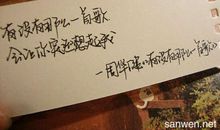 有没有那么一首歌
会让你突然想起我
—周华健《有没有那么一首歌》
sanwen.net